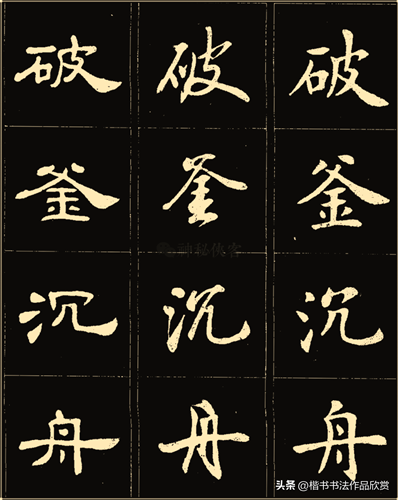 破 破 破
釜 釜 釜
沉 沉 沉
舟 舟 舟
神秘侠客
头条 @楷书书法作品欣赏